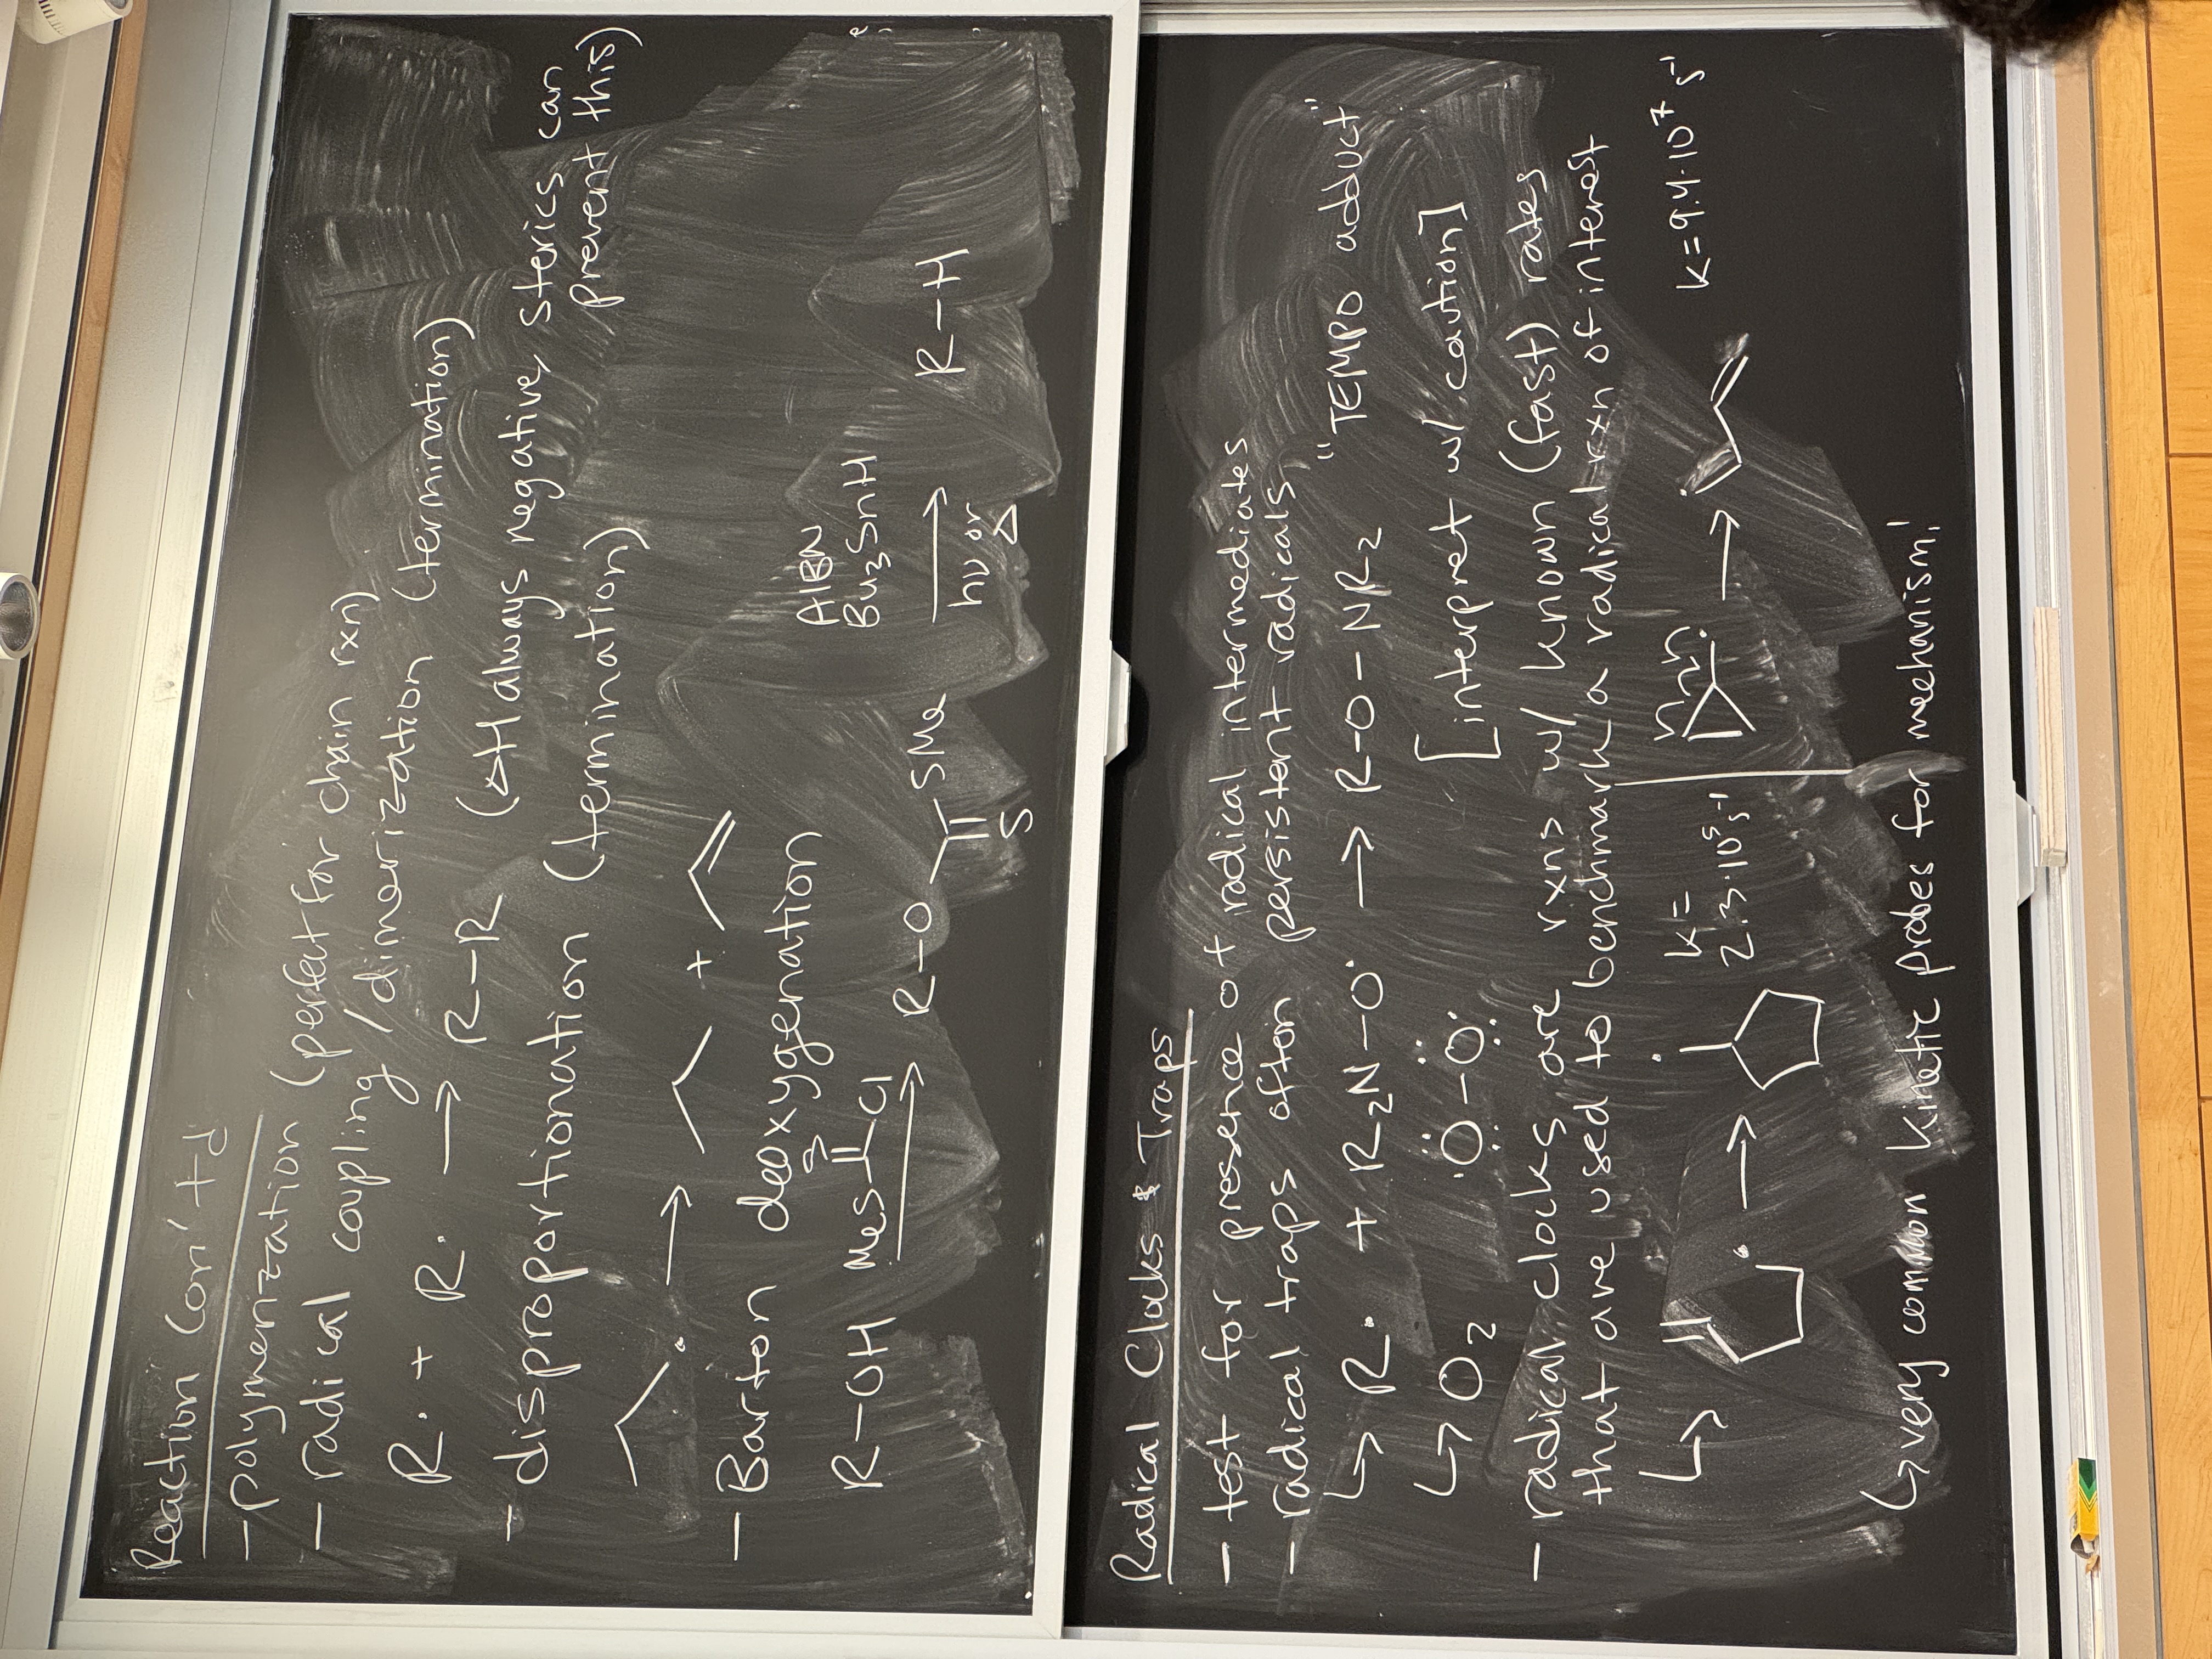 Reaction Con'td
- polymerization (perfect for chain rxn)
- radical coupling / dimerization (termination)
R· + R· → R-R (ΔH always negative, sterics can
prevent this)
- disproportionation (termination)
· → +
- Barton deoxygenation
S
AIBN
R-OH MeS Cl Bu₃SnH
→ R-O SMe → R-H
hν or
S Δ
Radical Clocks & Traps
- test for presence of radical intermediates
- radical traps often persistent radicals
↳ R· + R₂N-O· → R-O-NR₂ "TEMPO adduct"
↳ O₂ ·Ö-Ö· [interpret w/ caution]
- radical clocks are rxns w/ known (fast) rates
that are used to benchmark a radical rxn of interest
↳ · → · k= 2.3·10⁵ s⁻¹ | · → · k=9.4·10⁷ s⁻¹
↳ very common kinetic probes for mechanism!